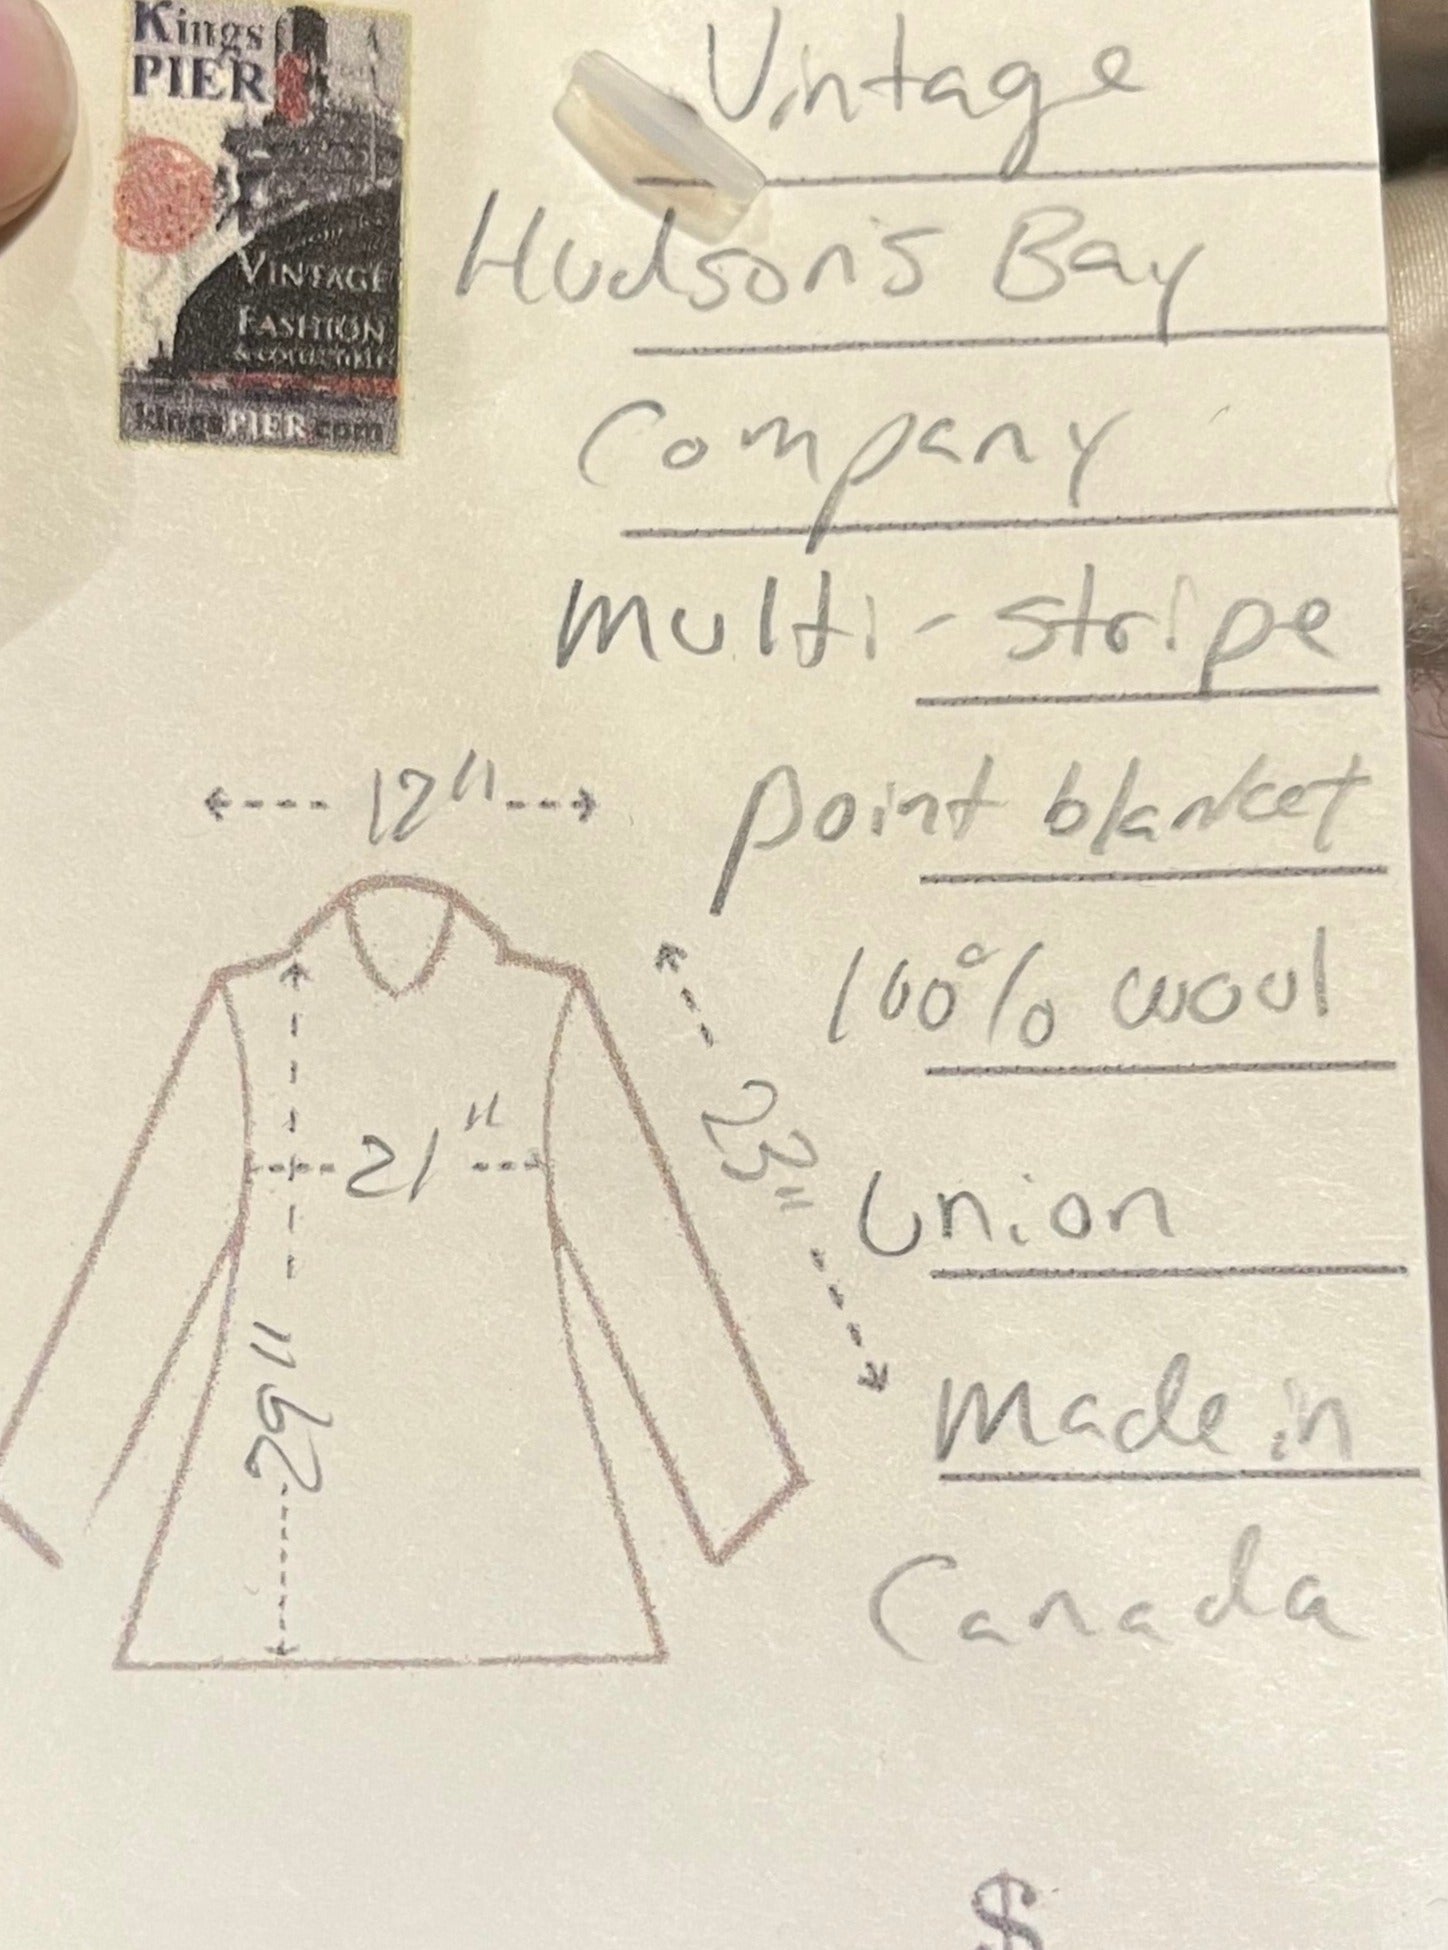 Kings
PIER
VINTAGE
FASHION
& COLLECTIBLES
kingsPIER.com
Vintage
Hudson's Bay
Company
multi-stripe
point blanket
100% wool
Union
made in
Canada
17"
21"
23"
29"
$